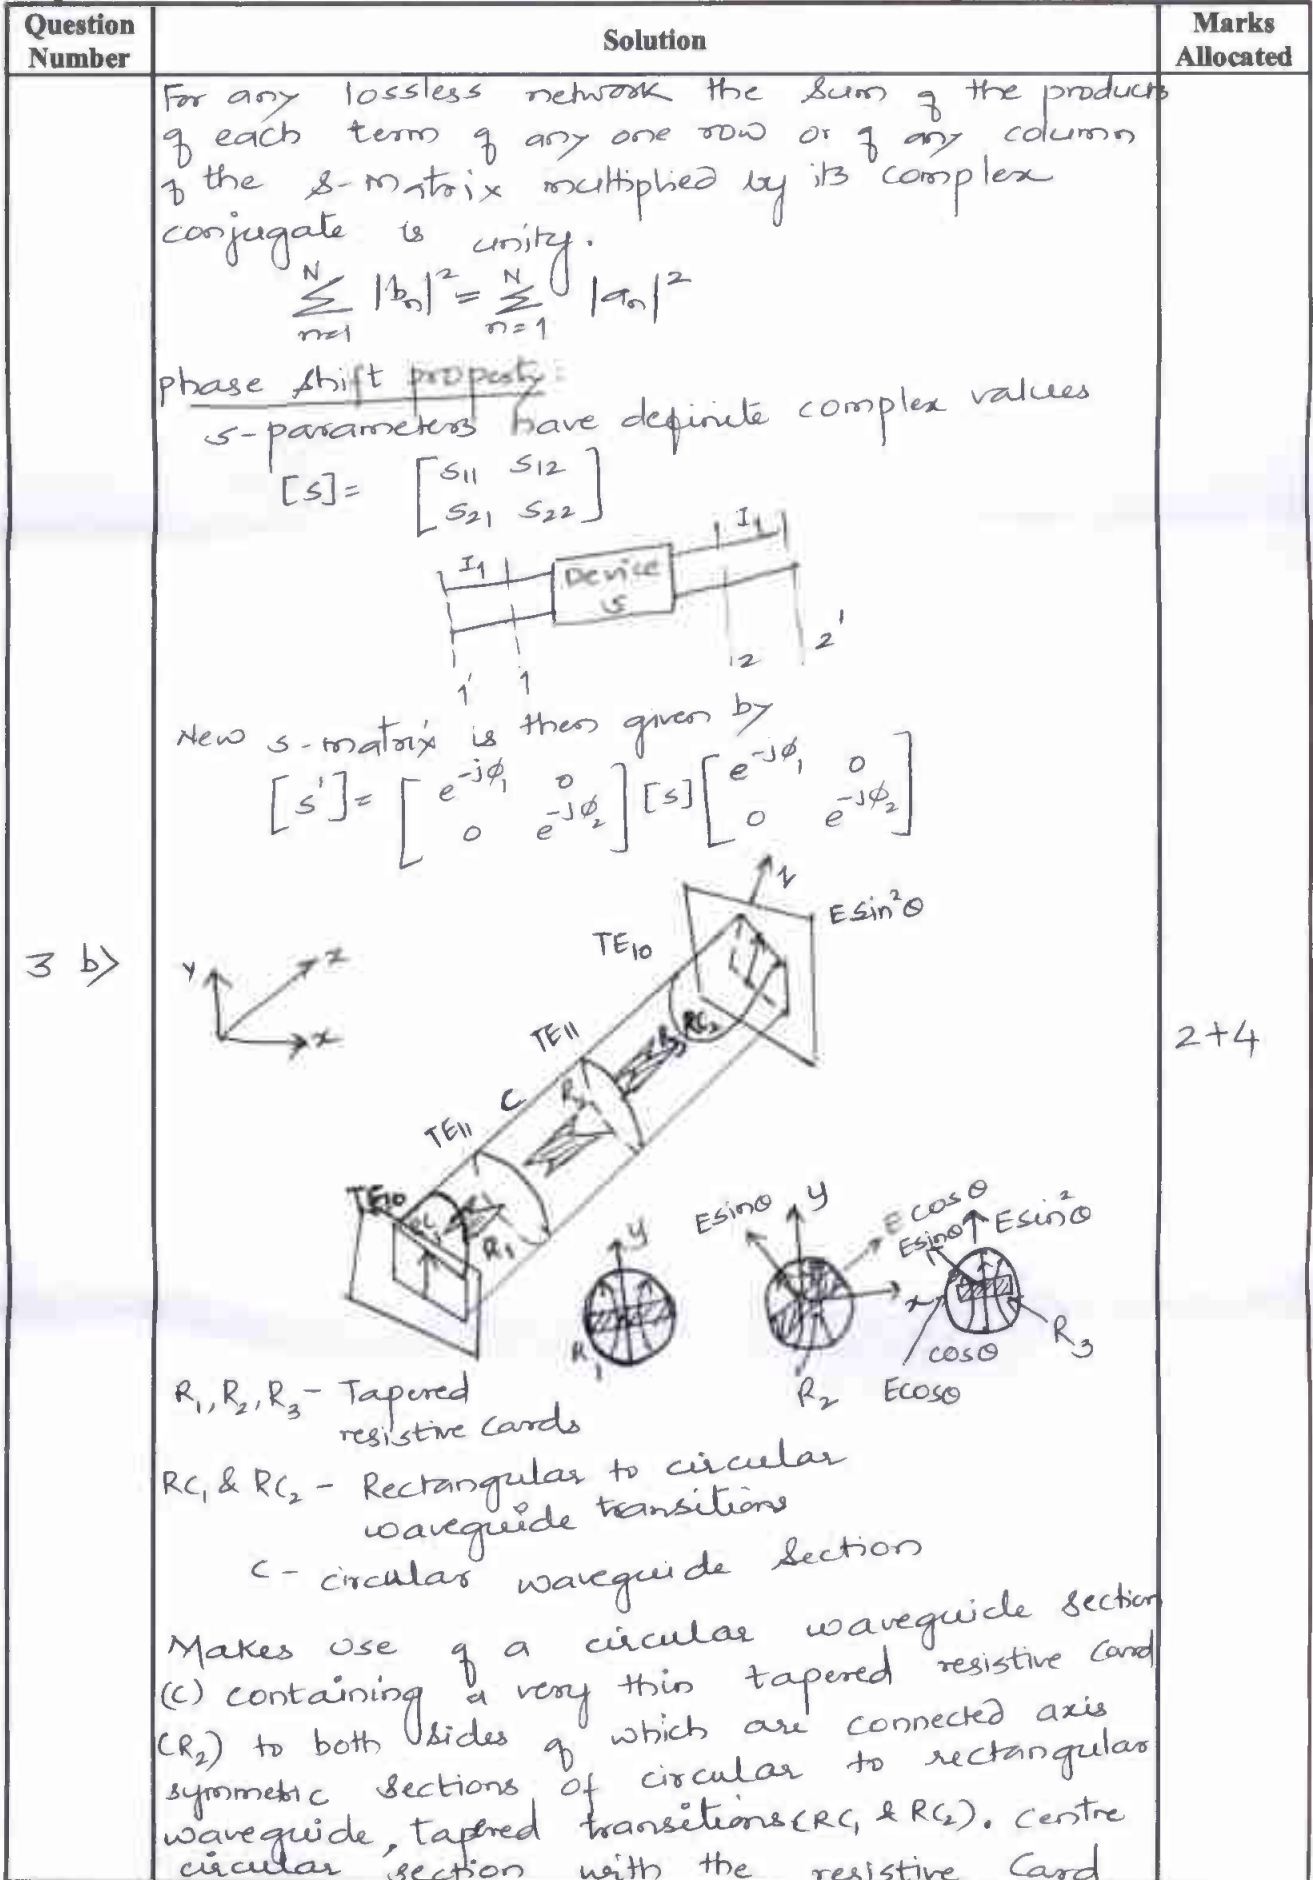 Question Number
Solution
Marks Allocated
For any lossless network the sum of the products
of each term of any one row or of any column
of the s-matrix multiplied by its complex
conjugate is unity.
N Σ n=1 |bn|² = N Σ n=1 |an|²
phase shift property:
s-parameters have definite complex values
[s] = [ S11 S12
S21 S22 ]
I1 Device S I1
1' 1 2 2'
New s-matrix is then given by
[s'] = [ e^-jφ1 0
0 e^-jφ2 ] [s] [ e^-jφ1 0
0 e^-jφ2 ]
3 b>
2+4
Y Z x
E sin²θ
TE10
RC2
TE11
R3
C
R2
TE11
TE10
R1
y
R1
Esinθ y E cosθ
x
R2
Esinθ Esin²θ
R3
cosθ
Ecosθ
R1, R2, R3 - Tapered
resistive cards
RC1 & RC2 - Rectangular to circular
waveguide transitions
C - circular waveguide section
Makes use of a circular waveguide section
(C) containing a very thin tapered resistive card
(R2) to both sides of which are connected axis
symmetric sections of circular to rectangular
waveguide, tapered transitions (RC1 & RC2). Centre
circular section with the resistive card